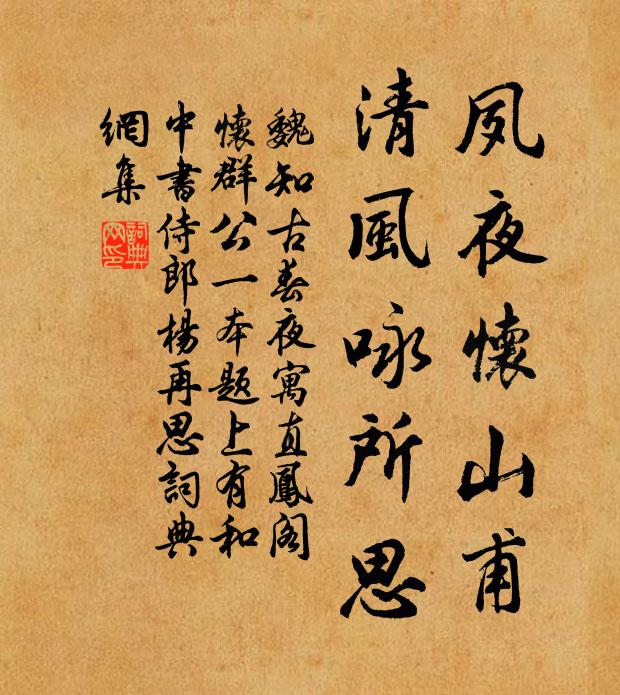 夙夜懷山甫
清風咏所思
魏知古春夜寓直鳳阁
懷群公一本題上有和
中書侍郎楊再思詞典
網集
詞典
网印